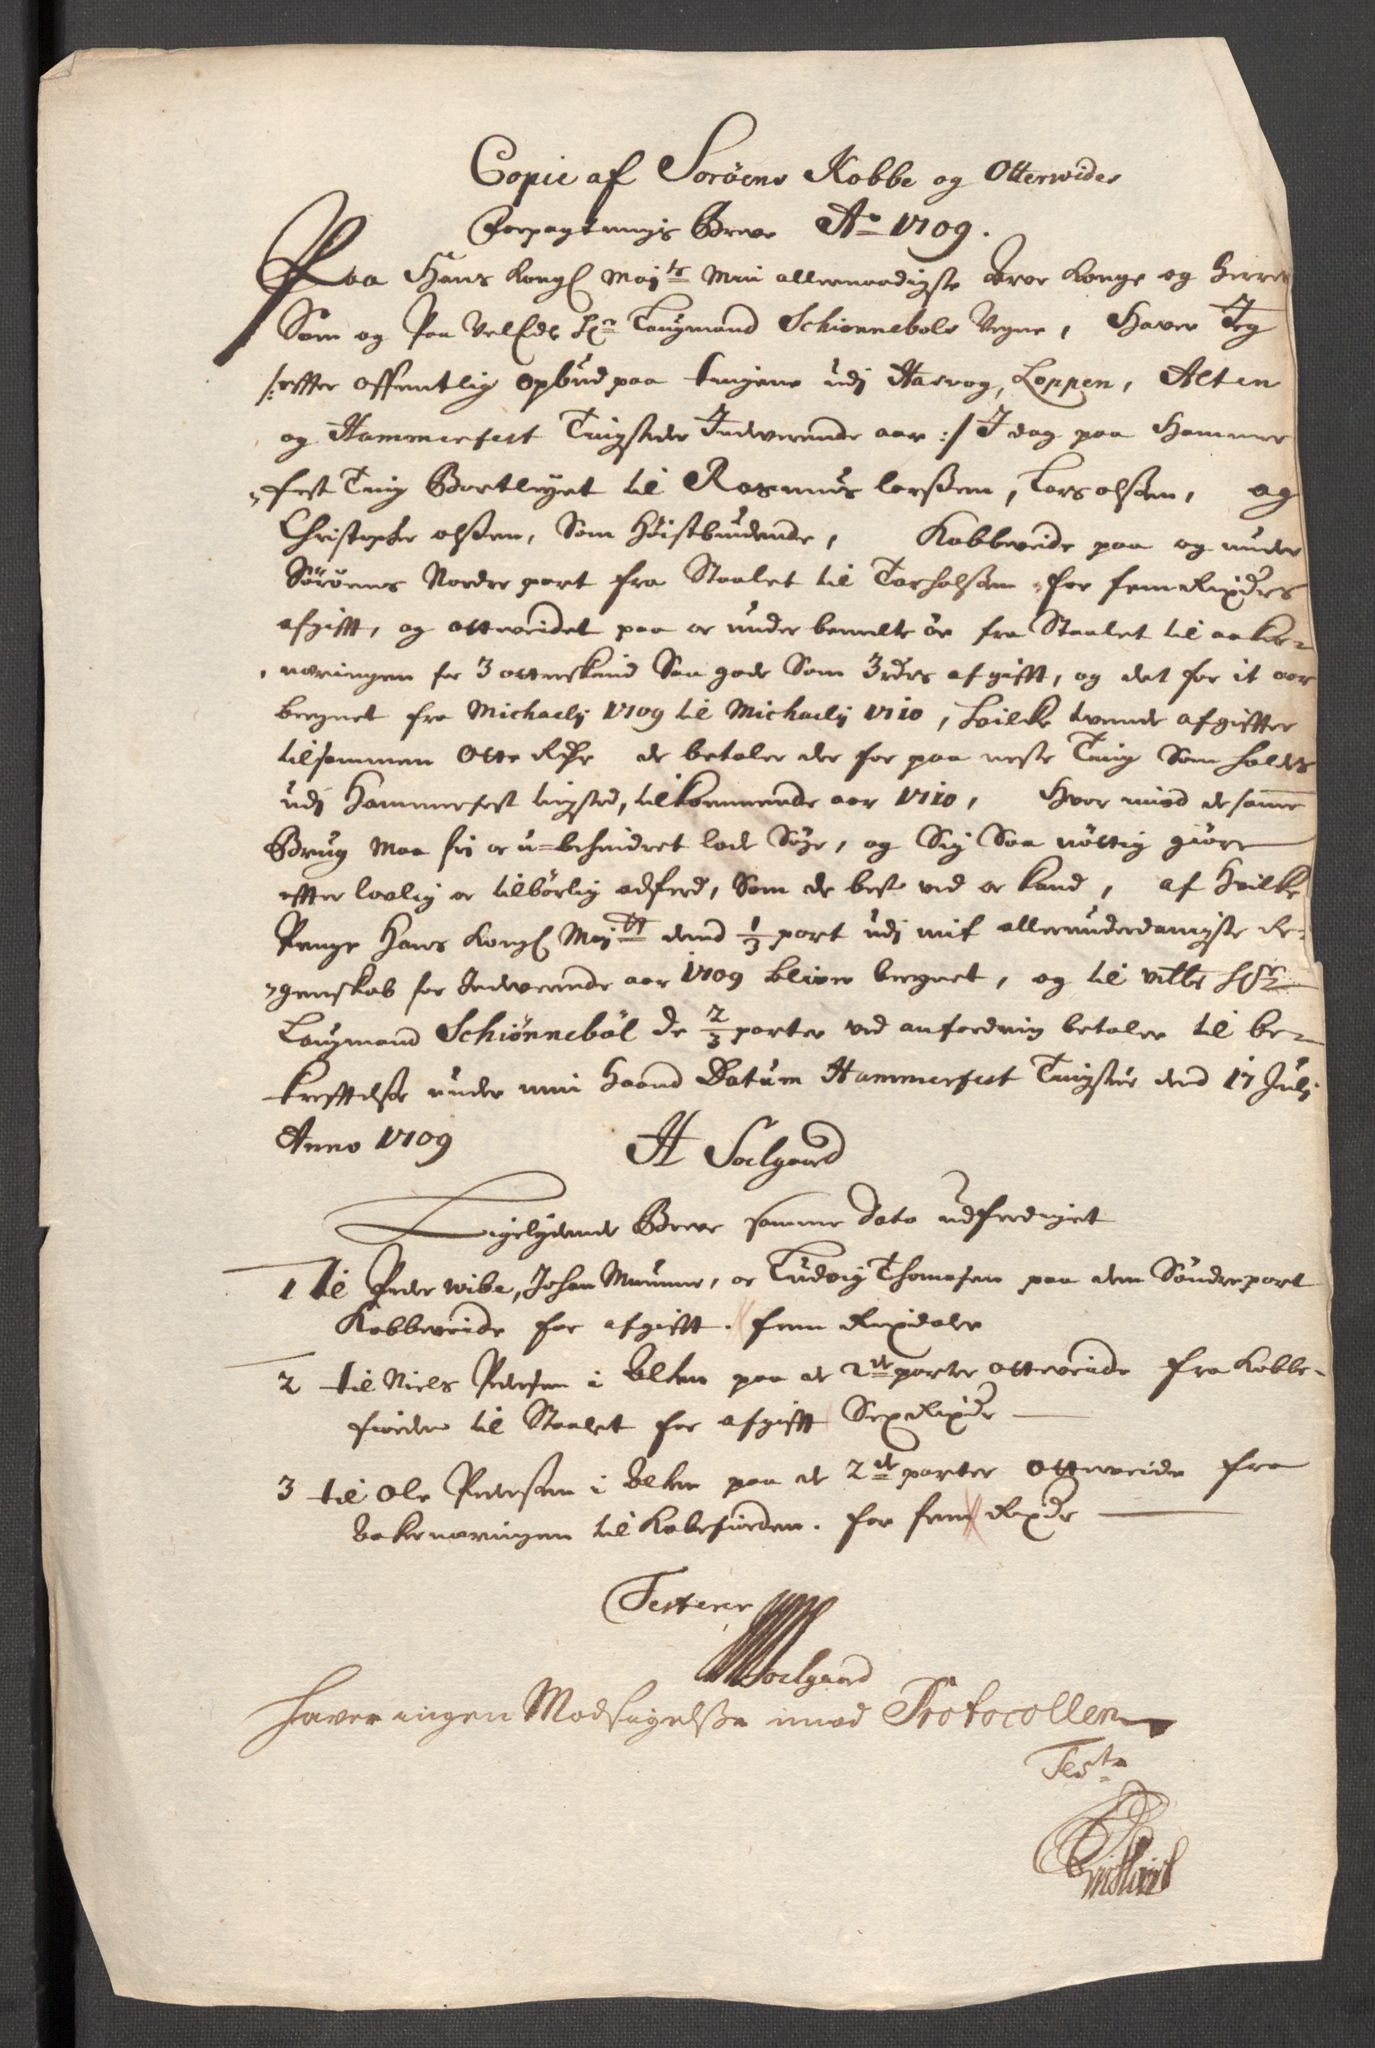 Copie af Sorøens Kobbe og Otterveides
Forpagtnings Breve Ao 1709.
Paa Hans Kongl Mayts Min allernaadigste Arve Konge og Herres
Som og Paa VelEdle Hr Laugmand Schiønnebols Vegne, Haver Jeg
/: effter offentlig opbud paa tingene udj Hasvog, Loppen, Alten
og Hammerfest Tingsteder Indeverende aar :/ I dag paa Hammer
fest Ting Bortleyet til Rasmus larssen, Lars olssen, og
Christopher olssen, Som Høistbiudende, Kobbeveide paa og under
Sørøens Norder part fra Staalet til Tarhalsen for fem Rixdrs
afgifft, og otterveidet paa oc under bemelte øe fra Staalet til aaker=
næringen for 3 otterskind Saa gode Som 3 rdrs afgifft, og det for it aar
beregnet fra Michaelj 1709 til Michaelj 1710, hvilke tvende afgiffter
tilsammen Otte Rdr de betaler der for paa neste Ting Som holdes
udj Hammerfest tingsted, tilkommende aar 1710, Hvor imod de samme
Brug Maa frj oc u-behindret lade Søge, og Sig Saa nøttig giøre
effter lovlig oc tilbørlig adferd, Som de best ved oc kand, af Hvilke
Penge Hans Kongl Mayts dend 1/3 part udj mit allerunderdanigste Re=
genskab for Indeverende aar 1709 bliver beregnet, og til vitte Hr
Laugmand Schiønnebøl de 2/3 parter ved anfordring betaler til be=
krefftelse under min Haand Datum Hammerfest Tingsted dend 17 Julj
Anno 1709 H Soelgaard
Ligelydende Breve samme dato udferdiget
1 til Peder wibe, Johan Munne, oc Ludvig Thomasen paa den Sønder part
Kobbeveide for afgifft. fem Rixdaler
2 til Niels Pedersen i Alten paa de 2de parter otterveide fra Kobbe=
fiorden til Staalet for afgifft Sex Rixdr
3 til Ole Pedersen i Alten paa de 2de parter otterveide fra
Aakernæringen til Kobefiorden. for fem Rixdr
Testerer
HSoelgaard
Haver ingen Modsigelsse imod Protocollen
Testr